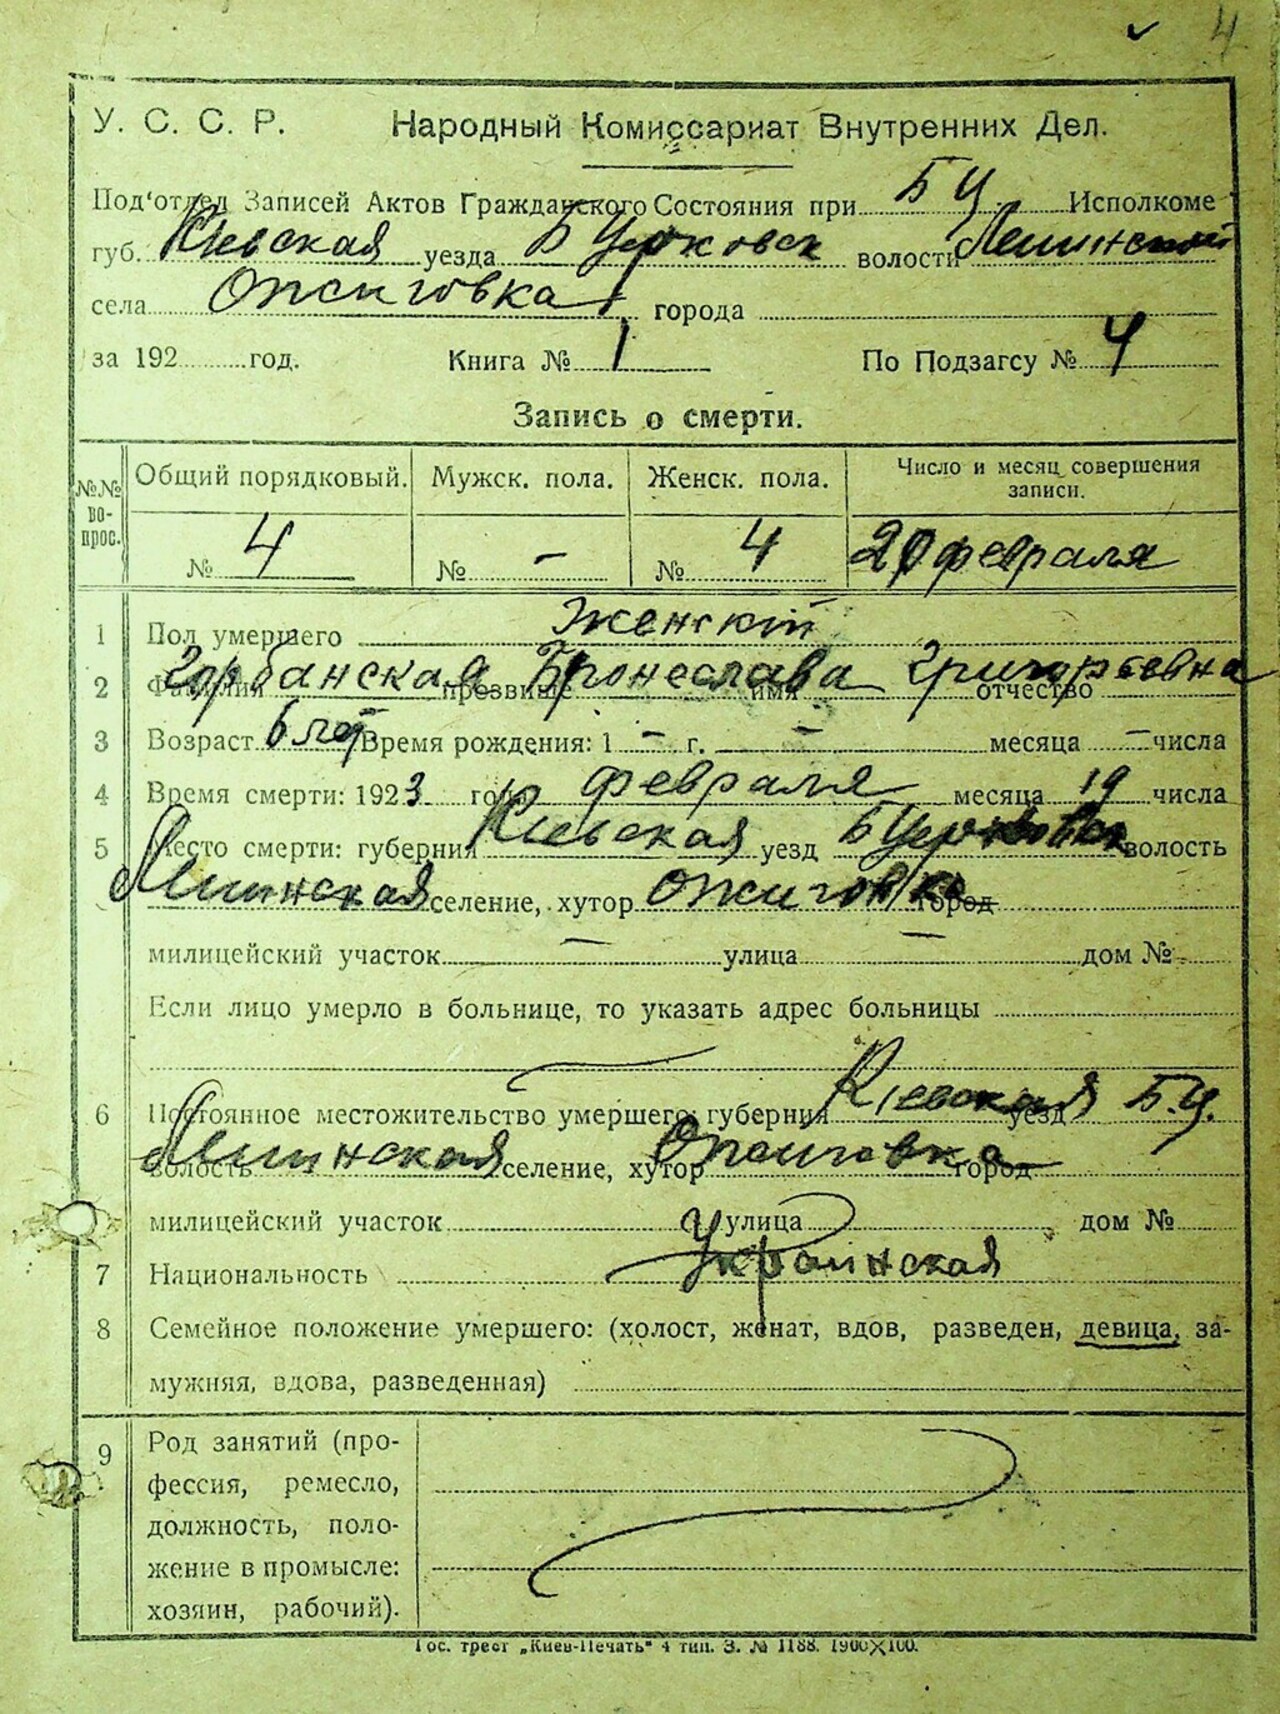 4
У. С. С. Р. Народный Комиссариат Внутренних Дел.
Под'отдел Записей Актов Гражданского Состояния при БЦ Исполкоме
губ. Кіевская уезда БЦерковск волости
села Ожиговка города
за 192 год. Книга № 1 По Подзагсу № 4
Запись о смерти.
№№ во-прос. Общий порядковый. Мужск. пола. Женск. пола. Число и месяц совершения записи.
№ 4 № - № 4 20 февраля
1 Пол умершего Женскій
2 Фамилия Горбанская прозвище Бронеслава имя Григорьевна отчество
3 Возраст 6 лет Время рождения: 1 - г. - месяца - числа
4 Время смерти: 1923 года февраля месяца 19 числа
5 Место смерти: губерния Кіевская уезд БЦерковск волость
селение, хутор Ожиговка город
милицейский участок — улица — дом №
Если лицо умерло в больнице, то указать адрес больницы
6 Постоянное местожительство умершего: губерния Кіевская уезд Б.Ц.
волость селение, хутор Ожиговка город
милицейский участок улица дом №
7 Национальность Украинская
8 Семейное положение умершего: (холост, женат, вдов, разведен, девица, за-
мужняя, вдова, разведенная)
9 Род занятий (про-
фессия, ремесло,
должность, поло-
жение в промысле:
хозяин, рабочий).
Гос. трест „Киев-Печать" 4 тип. З. № 1188. 1900×100.